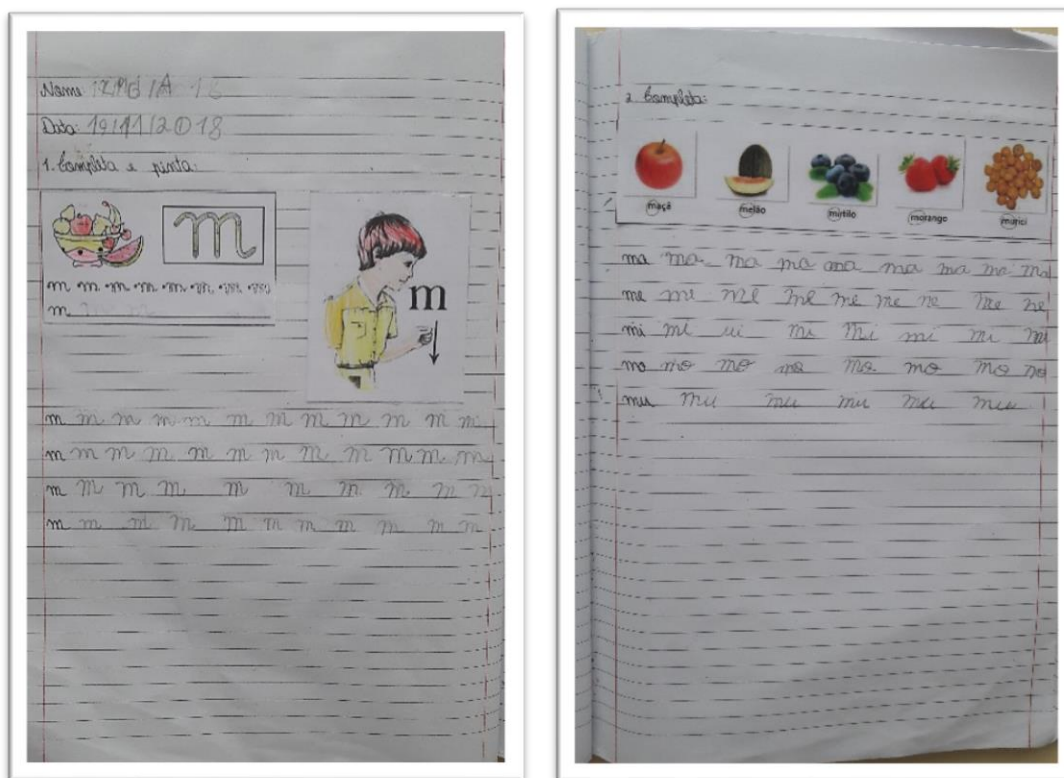 Nome:
Data: 19/11/2018
1. Completa e pinta:
m
m m m m m m m m
m
m
m m m m m m m m m m m m
m m m m m m m m m m m
m m m m m m m m m
m m m m m m m m m m
2. Completa:
maçã melão mirtilo morango murici
ma ma ma ma ma ma ma ma ma
me me me me me me ne me ne
mi mi ui mi mi mi mi mi
mo mo mo mo mo mo mo mo
mu mu mu mu mu mu